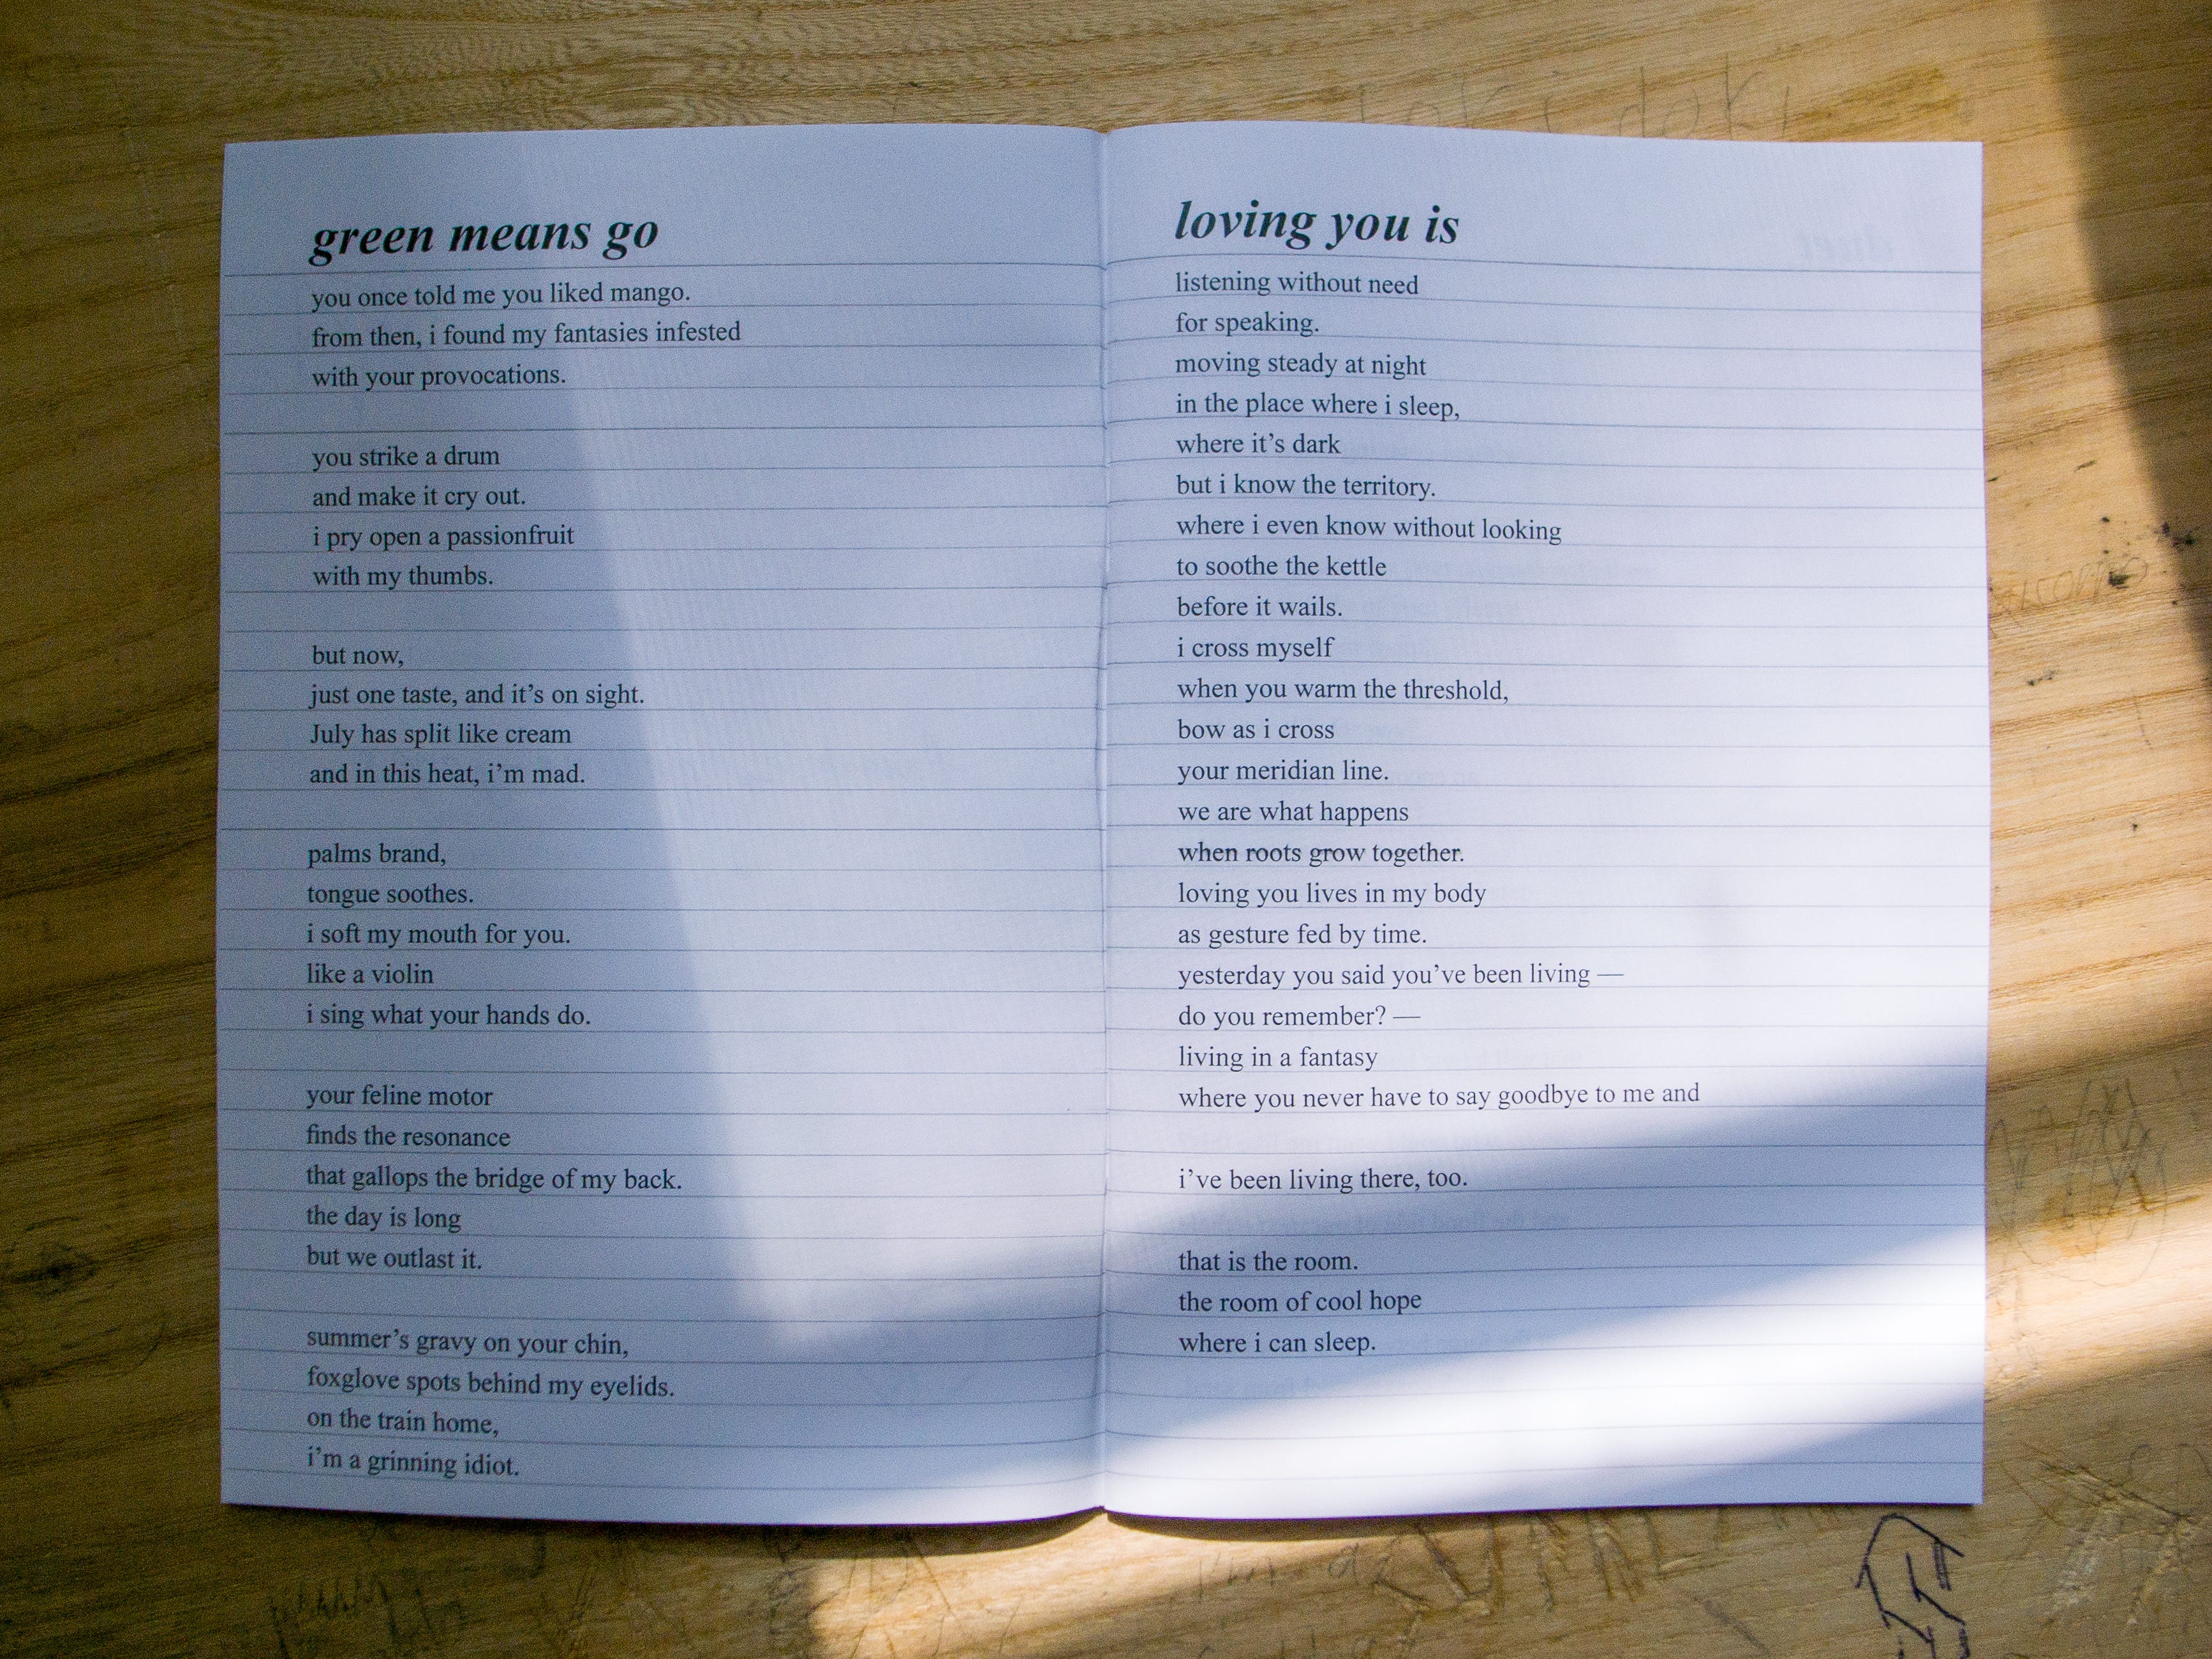 green means go
you once told me you liked mango.
from then, i found my fantasies infested
with your provocations.
you strike a drum
and make it cry out.
i pry open a passionfruit
with my thumbs.
but now,
just one taste, and it's on sight.
July has split like cream
and in this heat, i'm mad.
palms brand,
tongue soothes.
i soft my mouth for you.
like a violin
i sing what your hands do.
your feline motor
finds the resonance
that gallops the bridge of my back.
the day is long
but we outlast it.
summer's gravy on your chin,
foxglove spots behind my eyelids.
on the train home,
i'm a grinning idiot.
loving you is
listening without need
for speaking.
moving steady at night
in the place where i sleep,
where it's dark
but i know the territory.
where i even know without looking
to soothe the kettle
before it wails.
i cross myself
when you warm the threshold,
bow as i cross
your meridian line.
we are what happens
when roots grow together.
loving you lives in my body
as gesture fed by time.
yesterday you said you've been living —
do you remember? —
living in a fantasy
where you never have to say goodbye to me and
i've been living there, too.
that is the room.
the room of cool hope
where i can sleep.